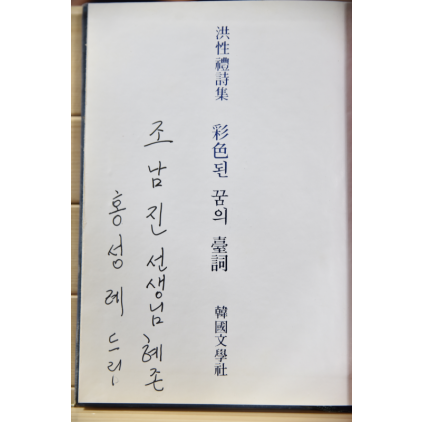 洪性禮詩集 彩色된 꿈의 臺詞 韓國文學社
조남진 선생님 혜존
홍성례 드림